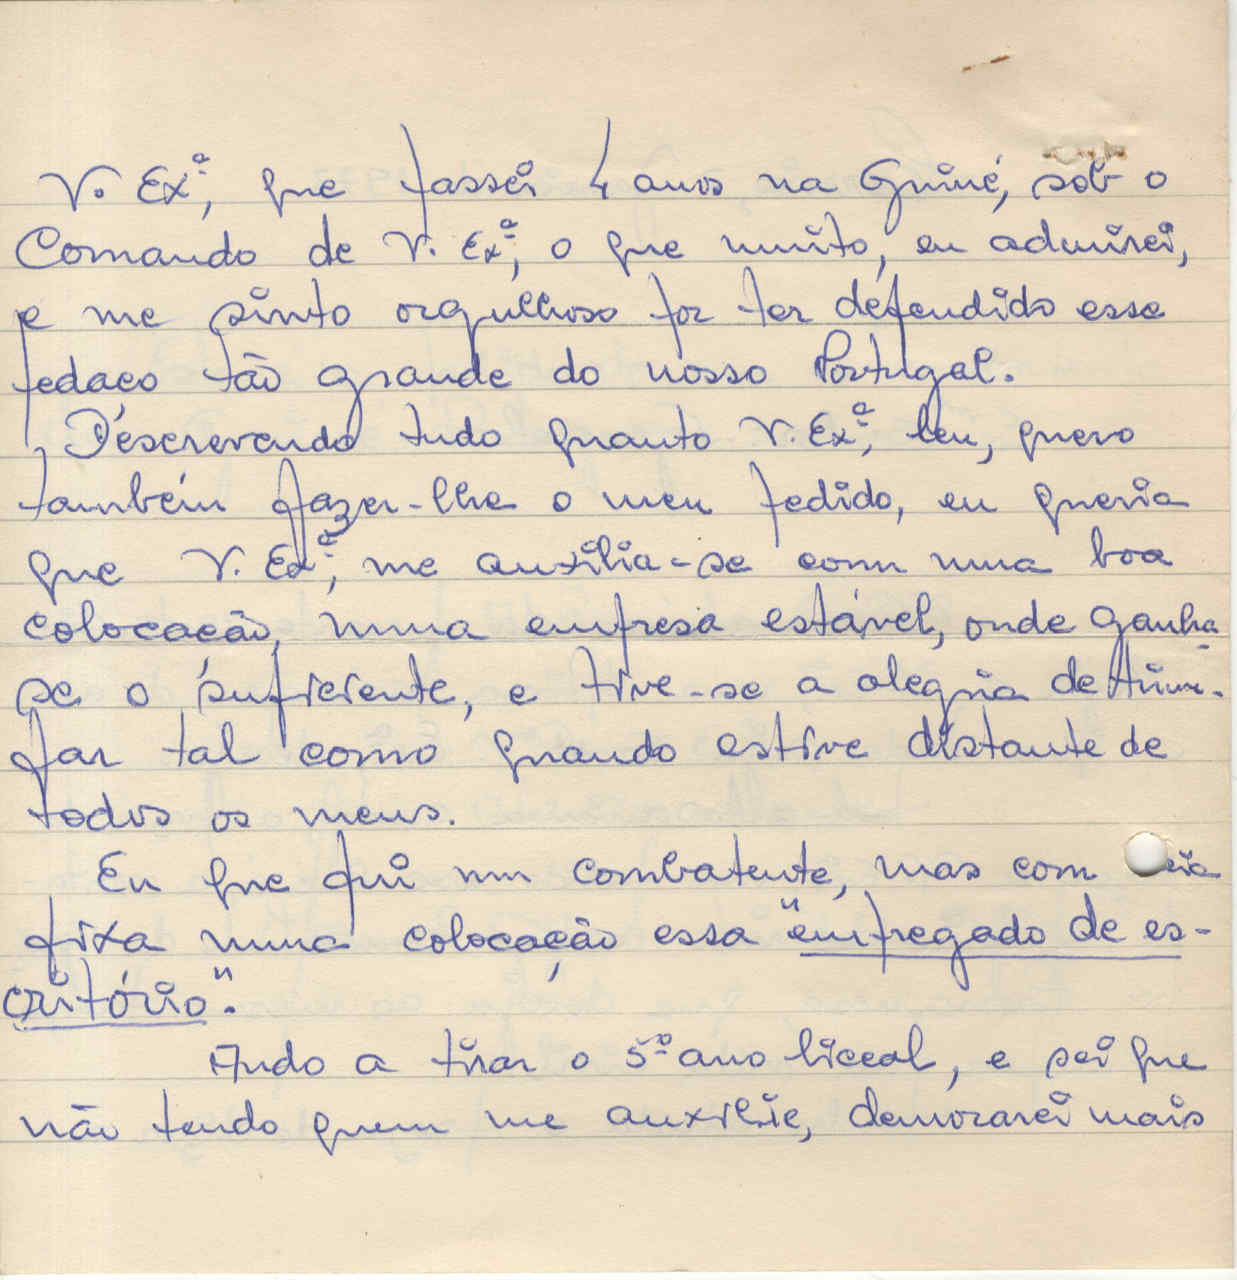 V. Exª, que passei 4 anos na Guiné, sob o
Comando de V. Exª, o que muito, eu admirei,
e me sinto orgulhoso por ter defendido esse
pedaco tão grande do nosso Portugal.
Descrevendo tudo quanto V. Exª, leu, quero
também fazer-lhe o meu pedido, eu queria
que V. Exª, me auxilia-se com uma boa
colocacão, numa empresa estável, onde ganha-
se o suficiente, e tive-se a alegria de triun-
far tal como quando estive distante de
todos os meus.
Eu que fui um combatente, mas com
fixa numa colocação essa "empregado de es-
critório".
Ando a tirar o 5º ano liceal, e sei que
não tendo quem me auxilie, demorarei mais